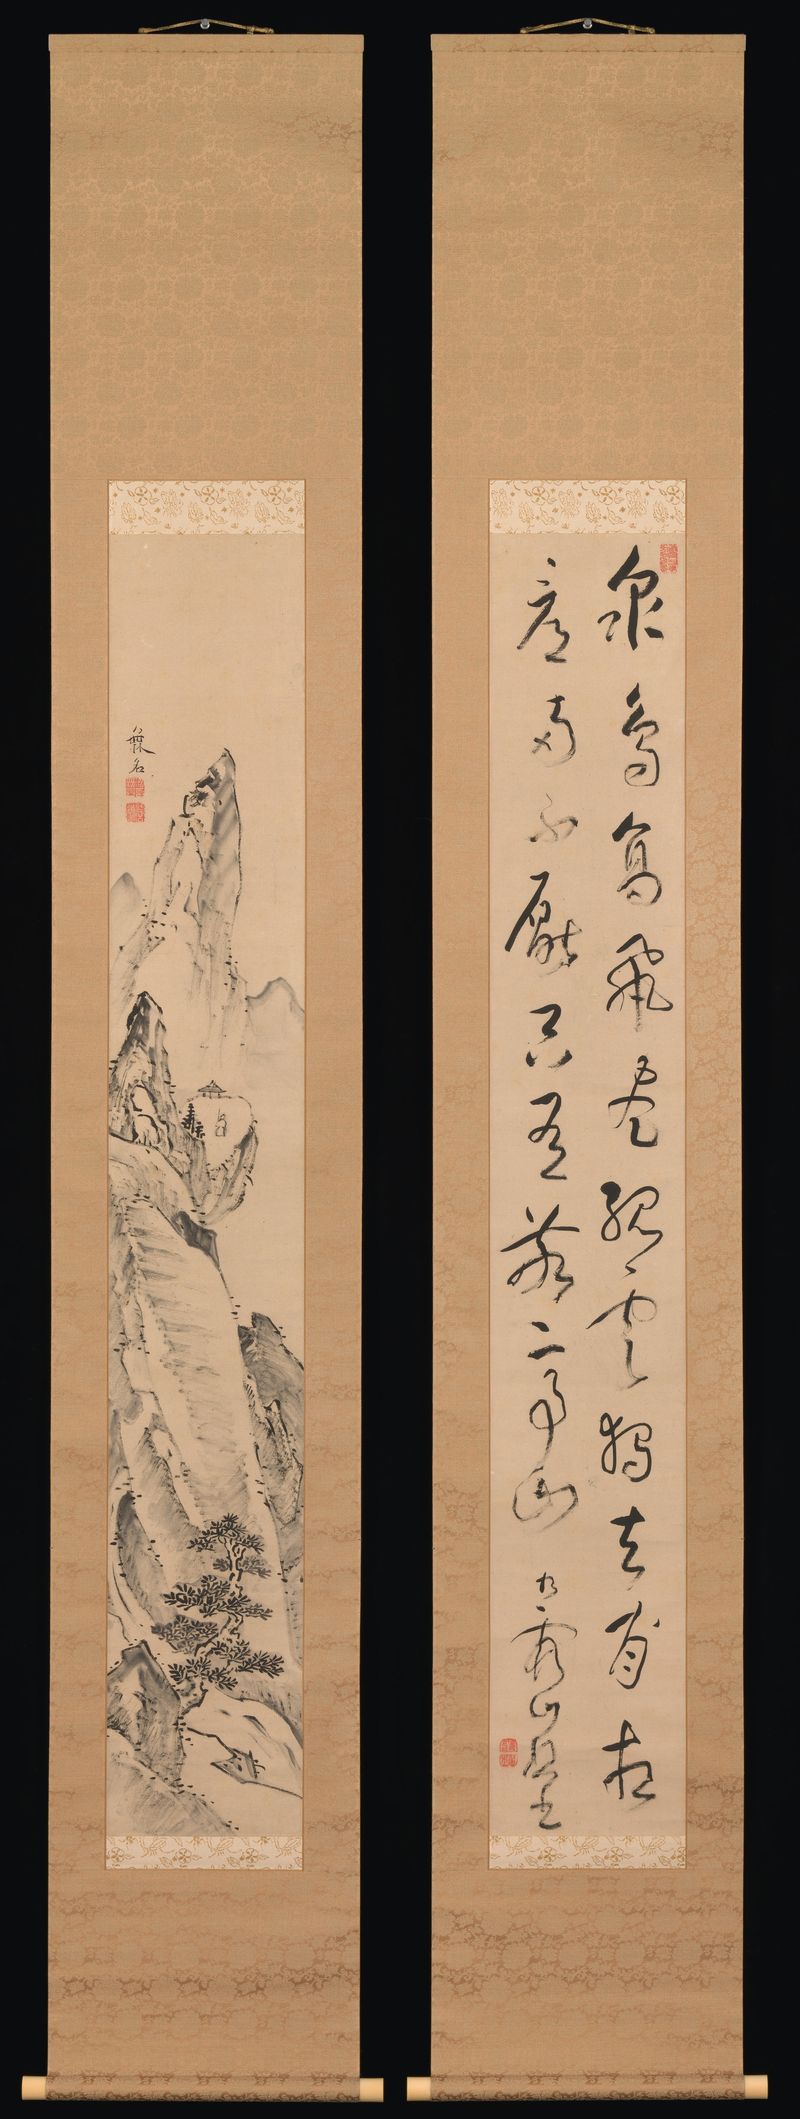 衆鳥高飛盡孤雲獨去閒相
看兩不厭只有敬亭山 九霞山樵書
無名